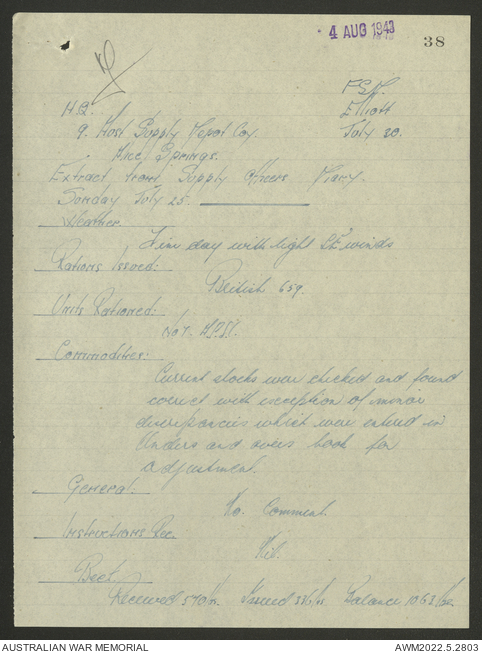 4 AUG 1943
38
F.S.D.
H.Q. Elliott
9. Aust Supply Depot Coy. July 30.
Alice Springs.
Extract from Supply Officers Diary.
Sunday July 25.
Weather.
Fine day with light S.E. winds
Rations Issued:
British 659.
Units Rationed:
No 7.
Commodities:
Current stocks were checked and found
correct with exception of minor
discrepancies which were entered in
Unders and overs book for
adjustment.
General.
No. Comment.
Instructions Rec.
Nil.
Beef.
Received 540 Issued Balance
AUSTRALIAN WAR MEMORIAL
AWM2022.5.2803